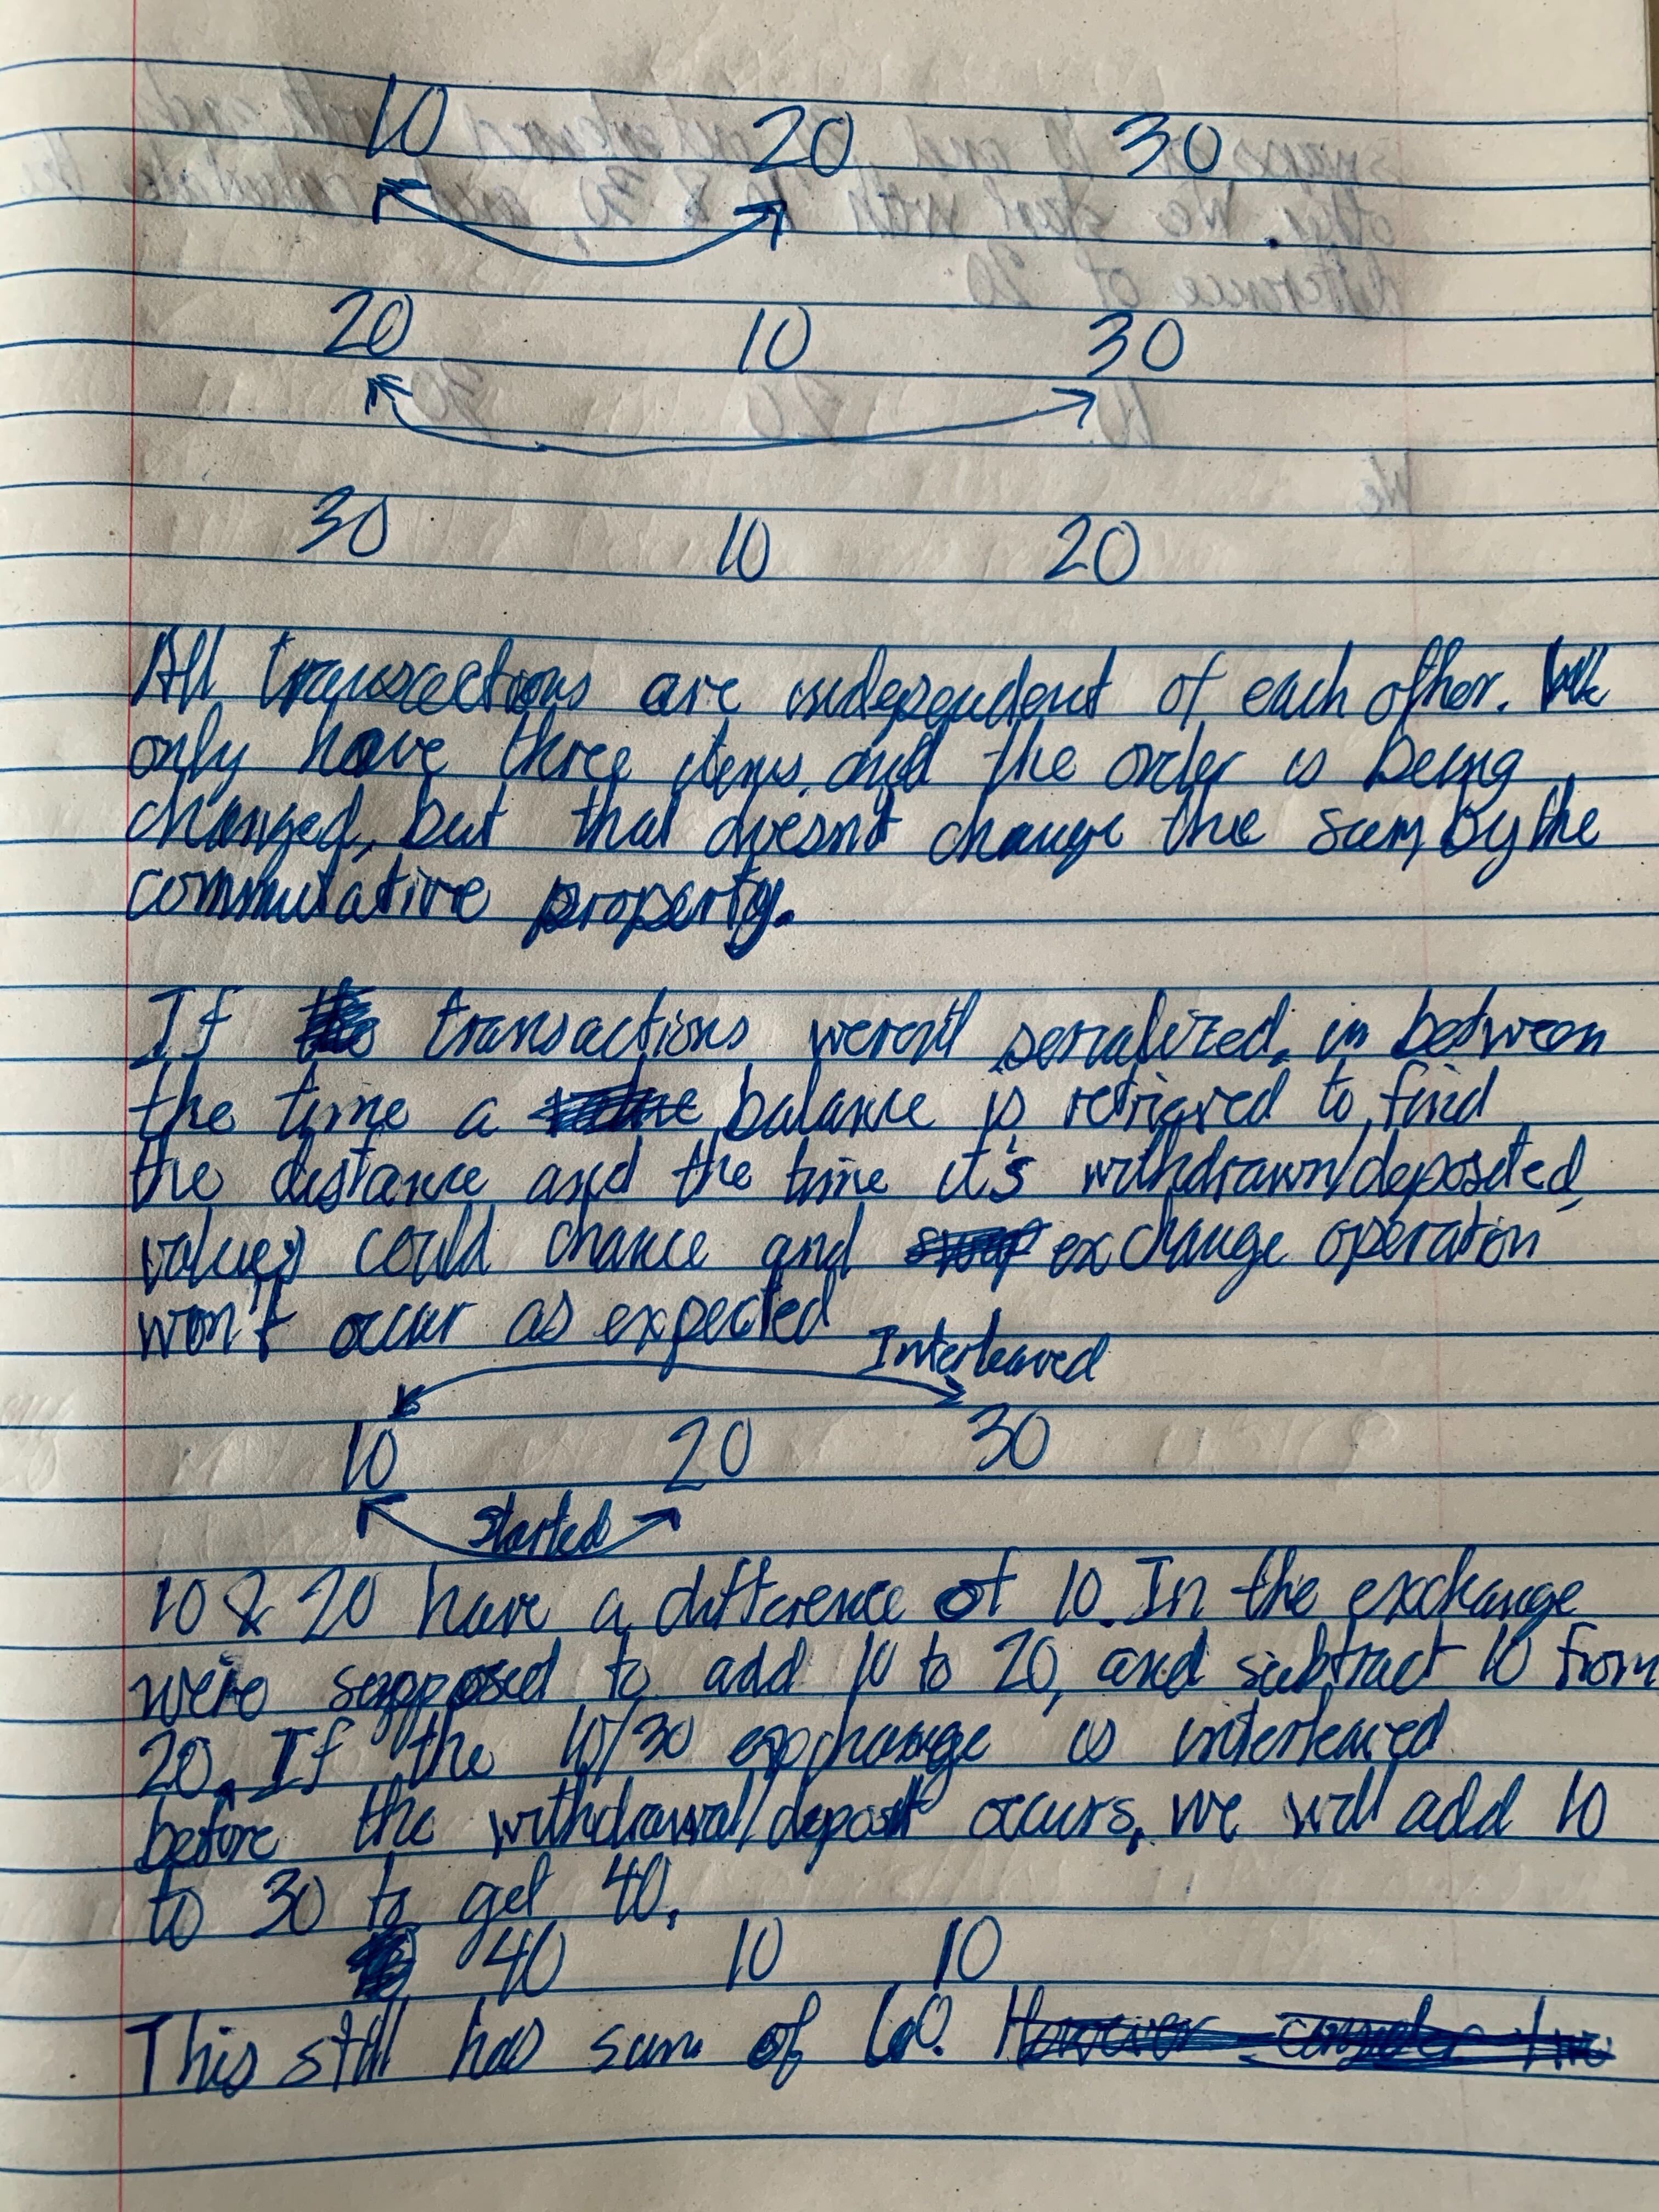 10 20 30
20 10 30
30 10 20
All transactions are independent of each other. We
only have three items and the order is being
changed, but that doesn't change the sum, by the
commutative property.
If transactions weren't serialized, in between
the time a balance is retrieved to find
the distance and the time it's withdrawn/deposited,
values could chance and exchange operation
won't occur as expected
Interleaved
10 20 30
Started
10 & 20 have a difference of 10. In the exchange
we're supposed to add 10 to 20, and subtract 10 from
20. If the 10/30 exchange is interleaved
before the withdrawal/deposit occurs, we will add 10
to 30 to get 40.
40 10 10
This still has sum of 60.